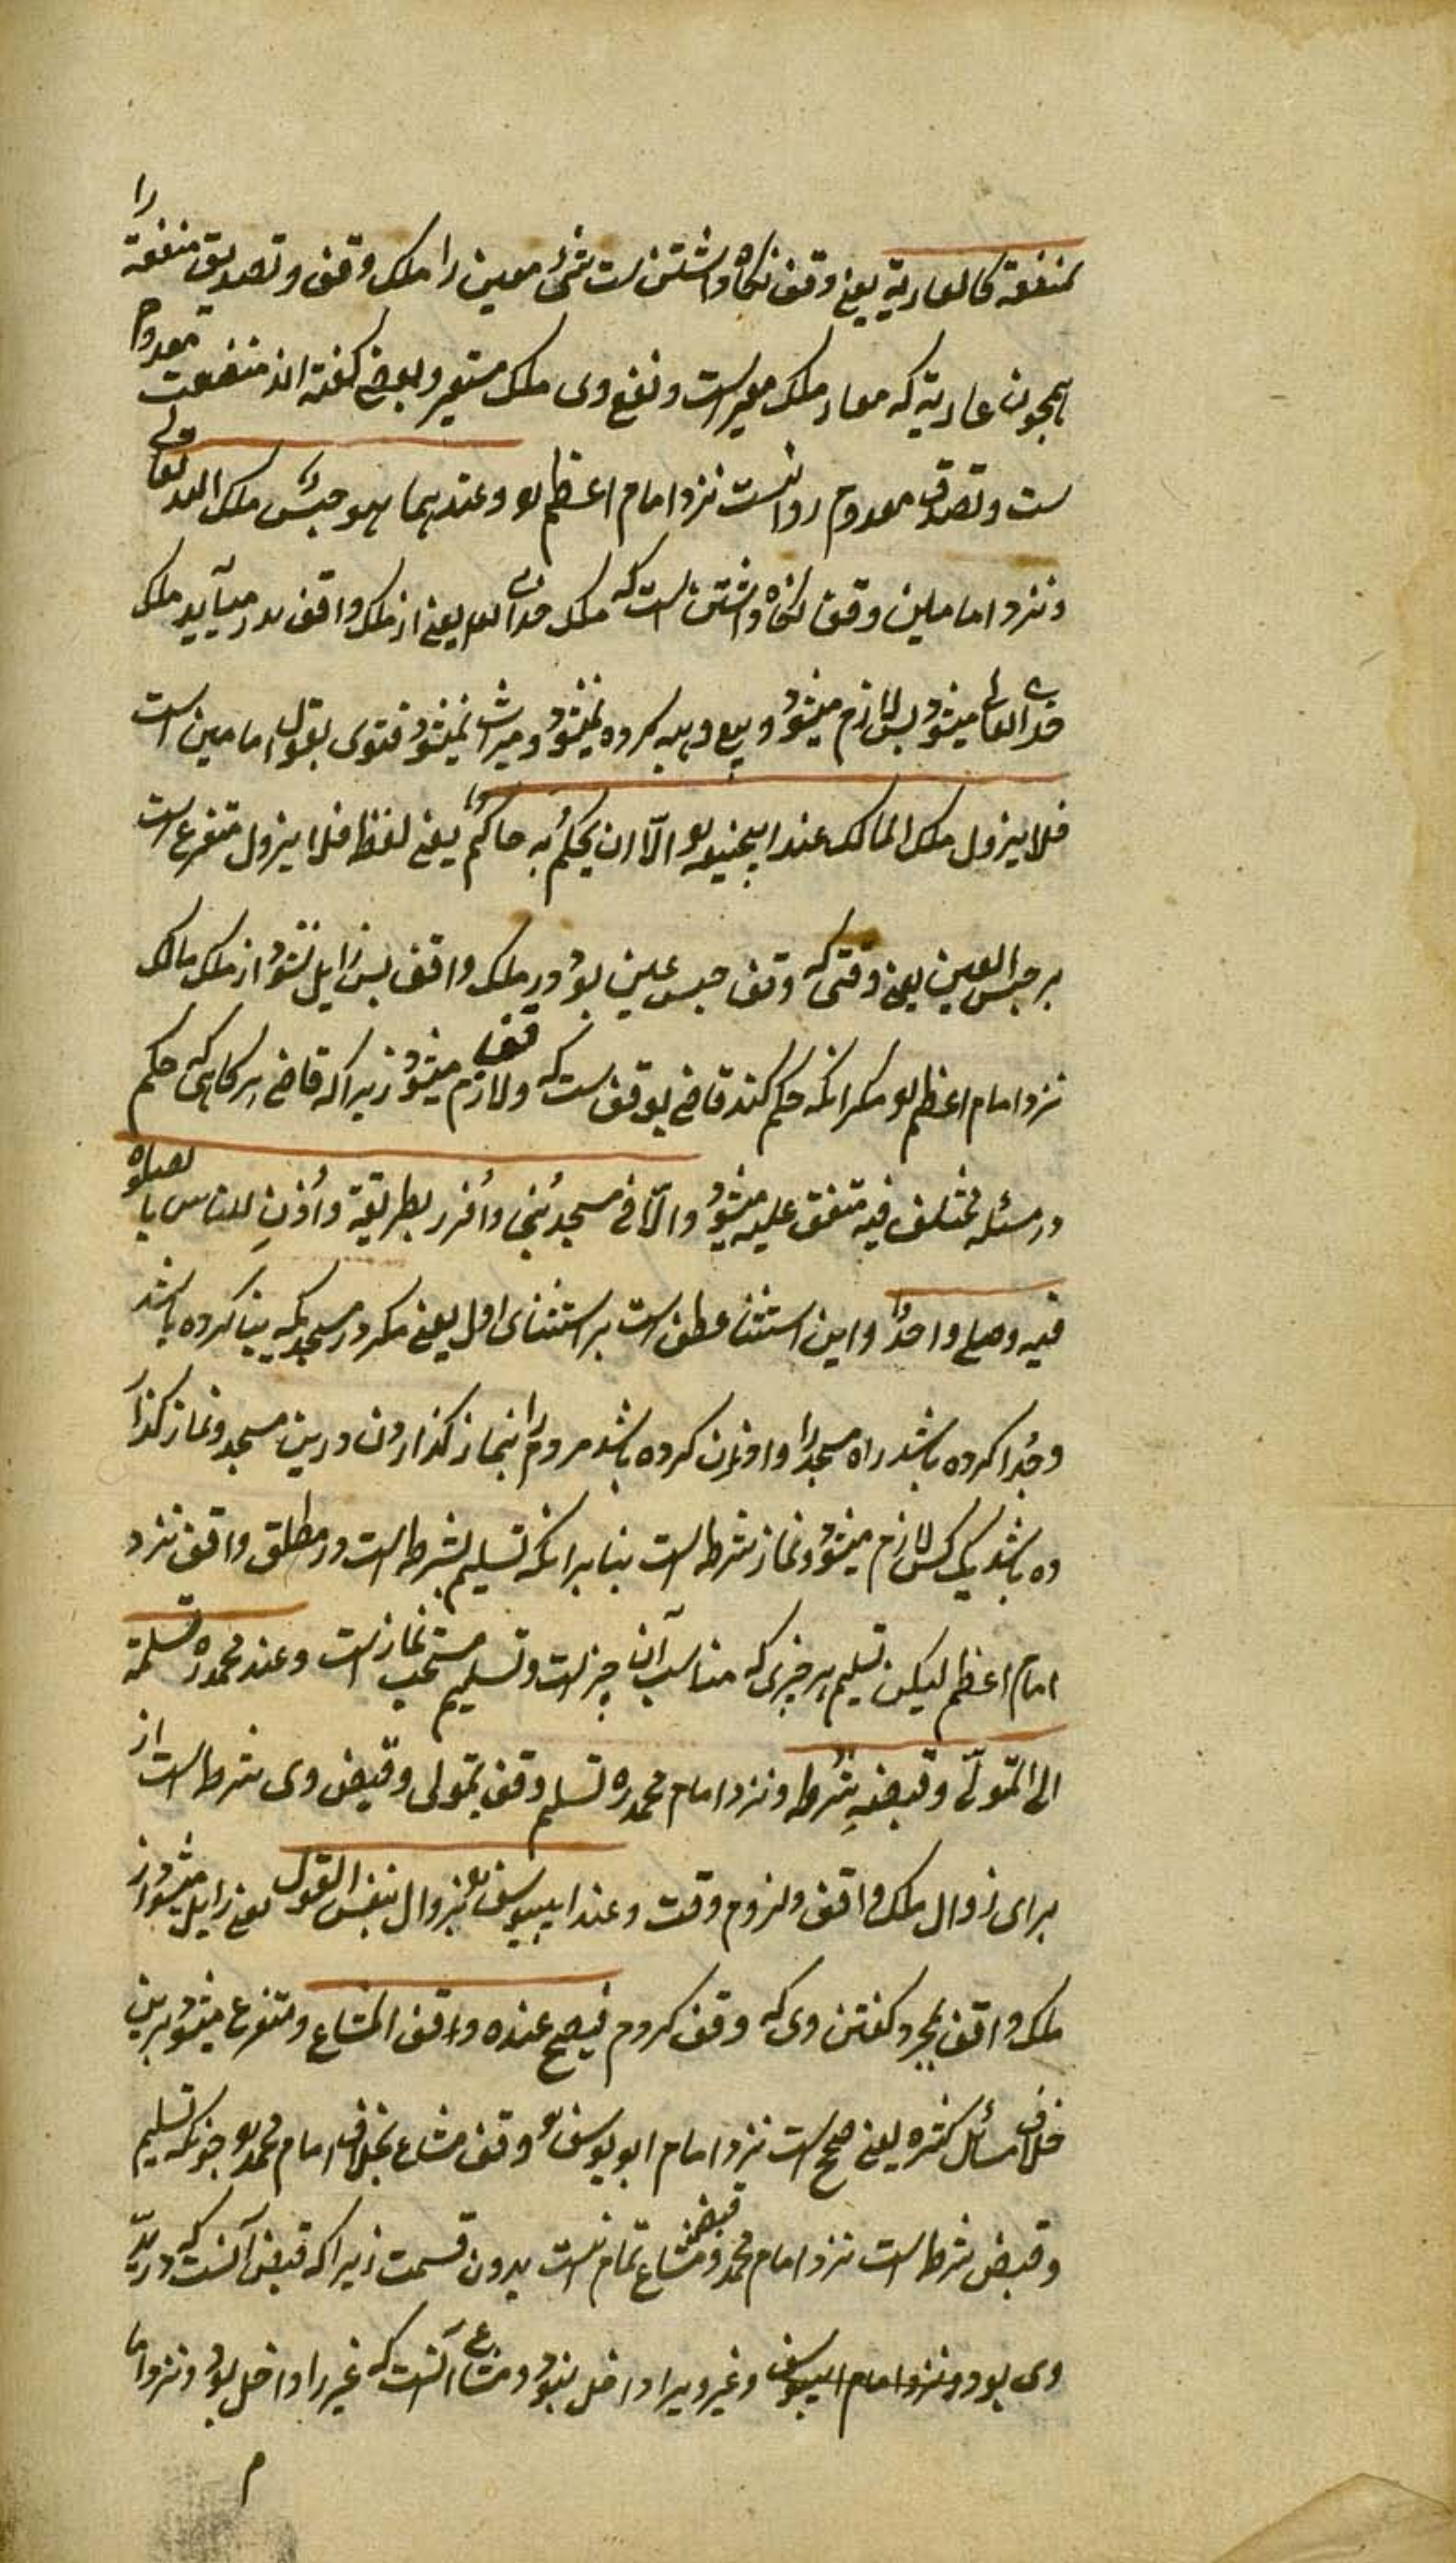 لمنفعة كالعارية يعنے وقف نكاه داشتن ست شئ معين را ملك وقف وتصديق منفعة را
همچون عارية كه معار ملك معير است ونفع وى ملك مستعير وبعضے كفته اند منفعت معدوم
ست وتصدق معدوم روا نست نزد امام اعظم بو وعندهما هو حبس ملك الله تعالى
ونزد امامين وقف نكاه داشتن است كه ملك خداى يعنے از ملك واقف بدر ميآيد ملك
خداى تعالى ميشود پس لازم ميشود وبيع وهبه كرده نميشود وميراث نميشود فتوى بقول امامين است
فلا يزول ملك المالك عند ابيحنيفه بو الّا ان يحكم به حاكم يعنے لفظ فلا يزول متفرع است
بر حبس العين يعنے وقتى كه وقف حبس عين بود در ملك واقف پس زايل نشود از ملك مالك
نزد امام اعظم بو مكر انكه حكم كند قاضے بوقف ست كه ولازم ميشود زيرا كه قاضے هركاهى كه حكم
در مسئله مختلف فيه متفق عليه ميشود والّا فى مسجد بُنى وأفرز بطريقة وأُذن للناس با لصلوة
فيه وصلى واحدٌ واين استثنا عطف است بر استثناى اول يعنے مكر در مسجديكه بنا كرده باشد
وجُدا كرده باشد راه مسجد را واو اذن كرده باشد مردم را بنماز كذاردن درين مسجد ونماز كذار
ده باشد يك كس لازم ميشود ونماز شرط است بنا بر انكه تسليم شرط است در مطلق واقف نزد
امام اعظم ليكن تسليم هر چيزى كه مناسب آن چيز است وتسليم مسجد نماز است وعند محمد ره تسلمه
الى المتولّى وقبضه شرط ونزد امام محمد ره تسليم وقف بمتولى وقبض وى شرط است از
براى زوال ملك واقف ولزوم وقت وعند ابييوسف بو يزوال بنفس القول يعنے زايل ميشود از
ملك واقف بمجرد كفتن وى كه وقف كردم فيصح عنده واقف المشاع ومتفرع ميشود برين
خلاف مسائل كثره يعنے صحيح است نزد امام ابو يوسف بو وقف مشاع بخلاف امام محمد بو چونكه تسليم
وقبض شرط است نزد امام محمد وقبض مشاع تمام نست بدون قسمت زيرا كه قبض آنست كه در يد
وى بود ونزد امام ابييوسف وغير ويرا داخل نبود ومشاع آنست كه غير را داخل بود ونزد اما
م